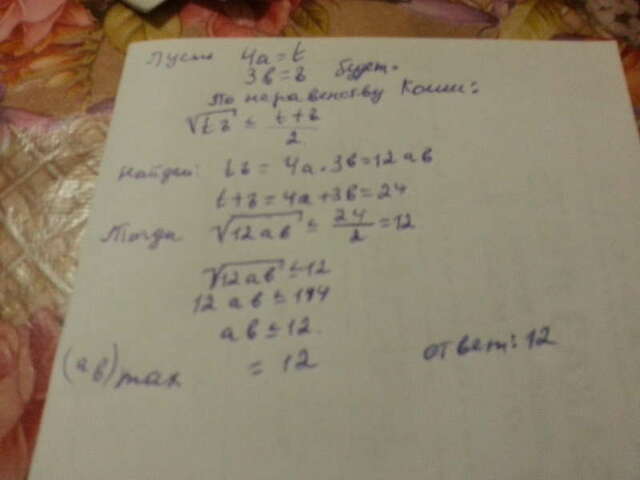 Пусть 4a = t
3b = z будет.
По неравенству Коши:
√tz ≤ t+z/2
Найдем: tz = 4a·3b = 12ab
t+z = 4a+3b = 24
Тогда √12ab ≤ 24/2 = 12
√12ab ≤ 12
12ab ≤ 144
ab ≤ 12.
(ab)max = 12 ответ: 12